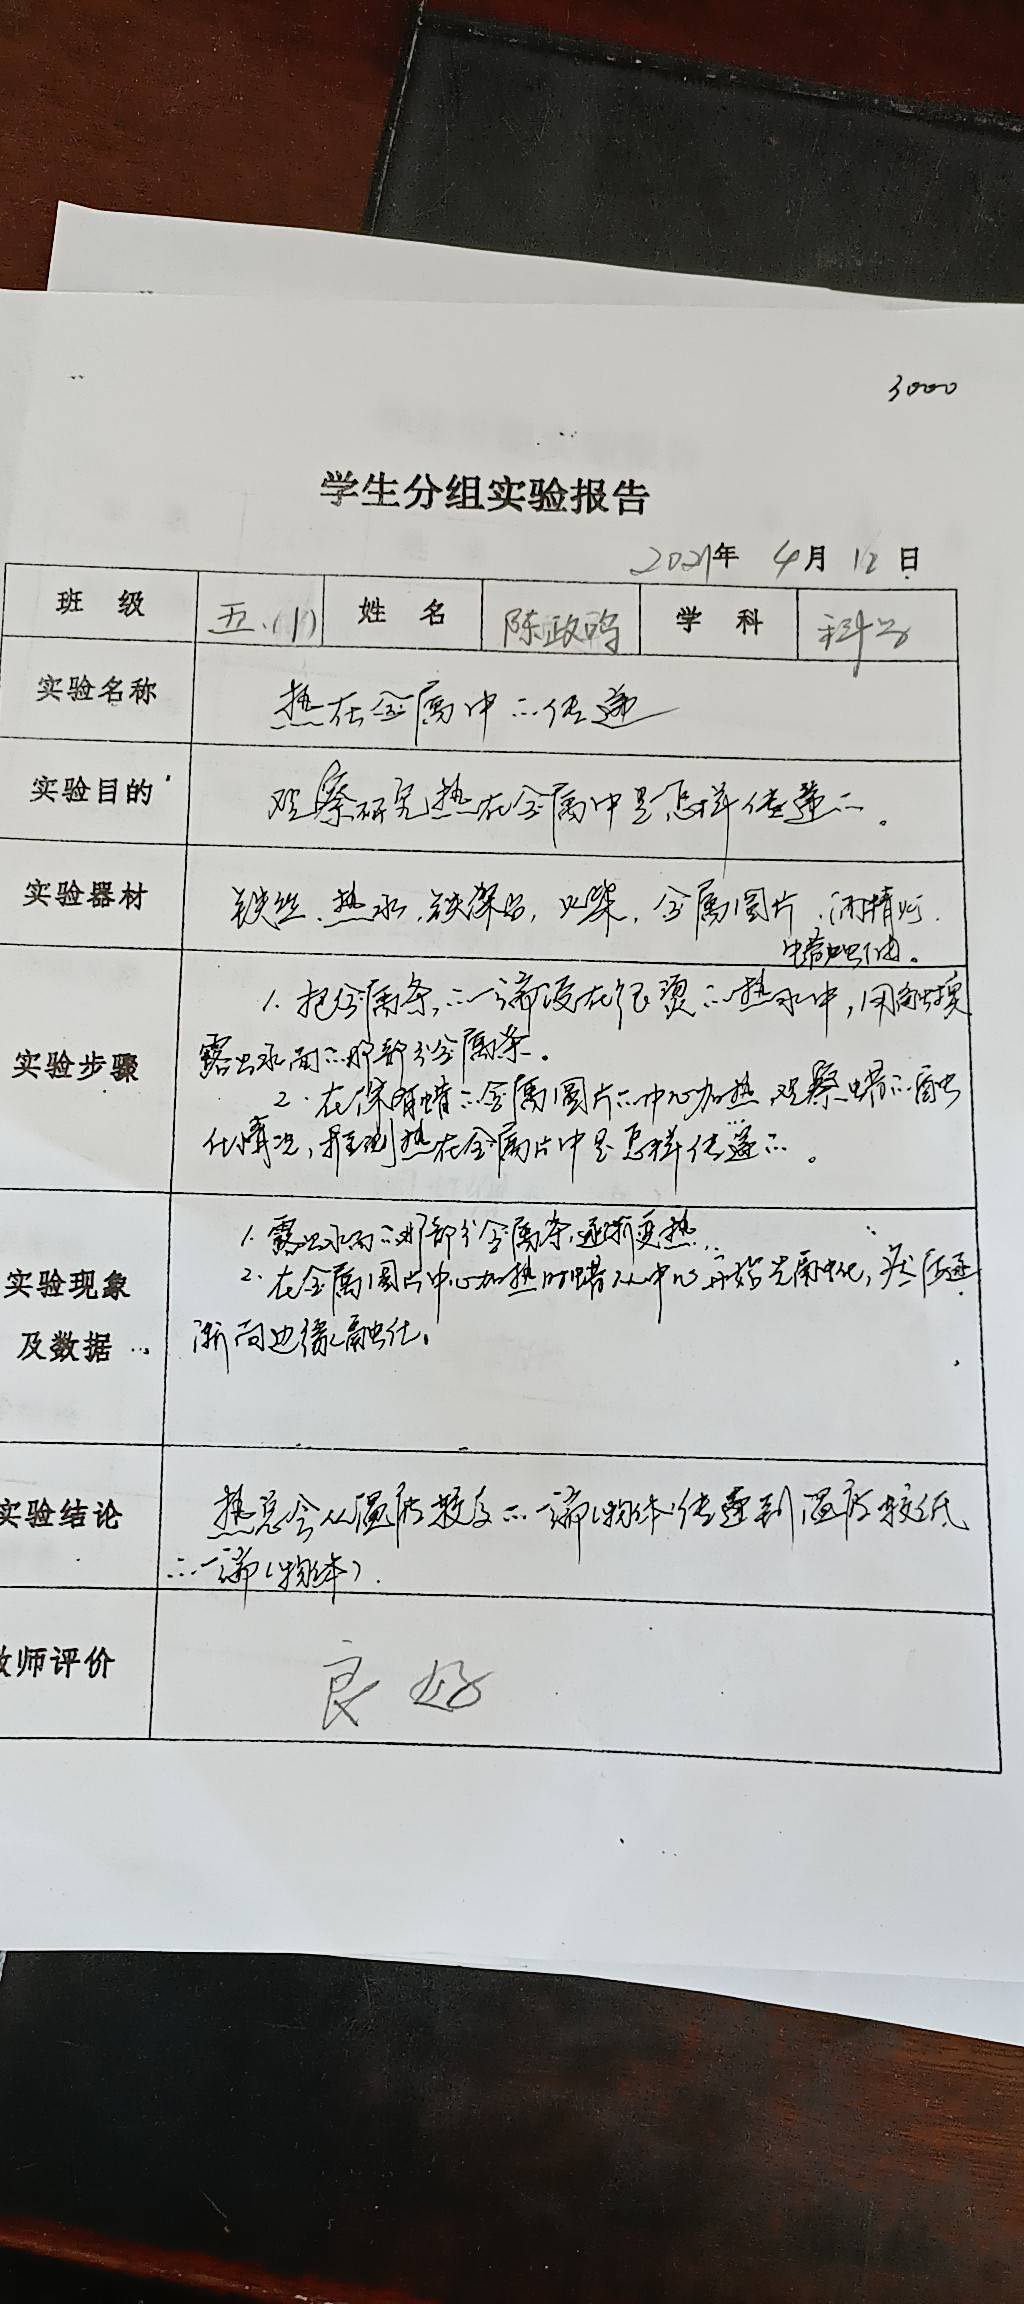 3000
学生分组实验报告
2021年 4月 12日
班 级 五.(1) 姓 名 陈政鸣 学 科 科学
实验名称 热在金属中的传递
实验目的 观察研究热在金属中是怎样传递的。
实验器材 铁丝、热水、铁架台,火柴,金属圆片、酒精灯、
蜡烛油。
1. 把金属条的一端浸在很烫的热水中,用手触摸
实验步骤 露出水面的那部分金属条。
2. 在涂有蜡的金属圆片的中心加热,观察蜡的融
化情况,推测热在金属片中是怎样传递的。
1. 露出水面的那部分金属条逐渐变热
实验现象 2. 在金属圆片中心加热时蜡从中心开始先融化,然后逐
及数据 渐向边缘融化。
实验结论 热总会从温度较高的一端(物体)传递到温度较低
的一端(物体).
教师评价 良好